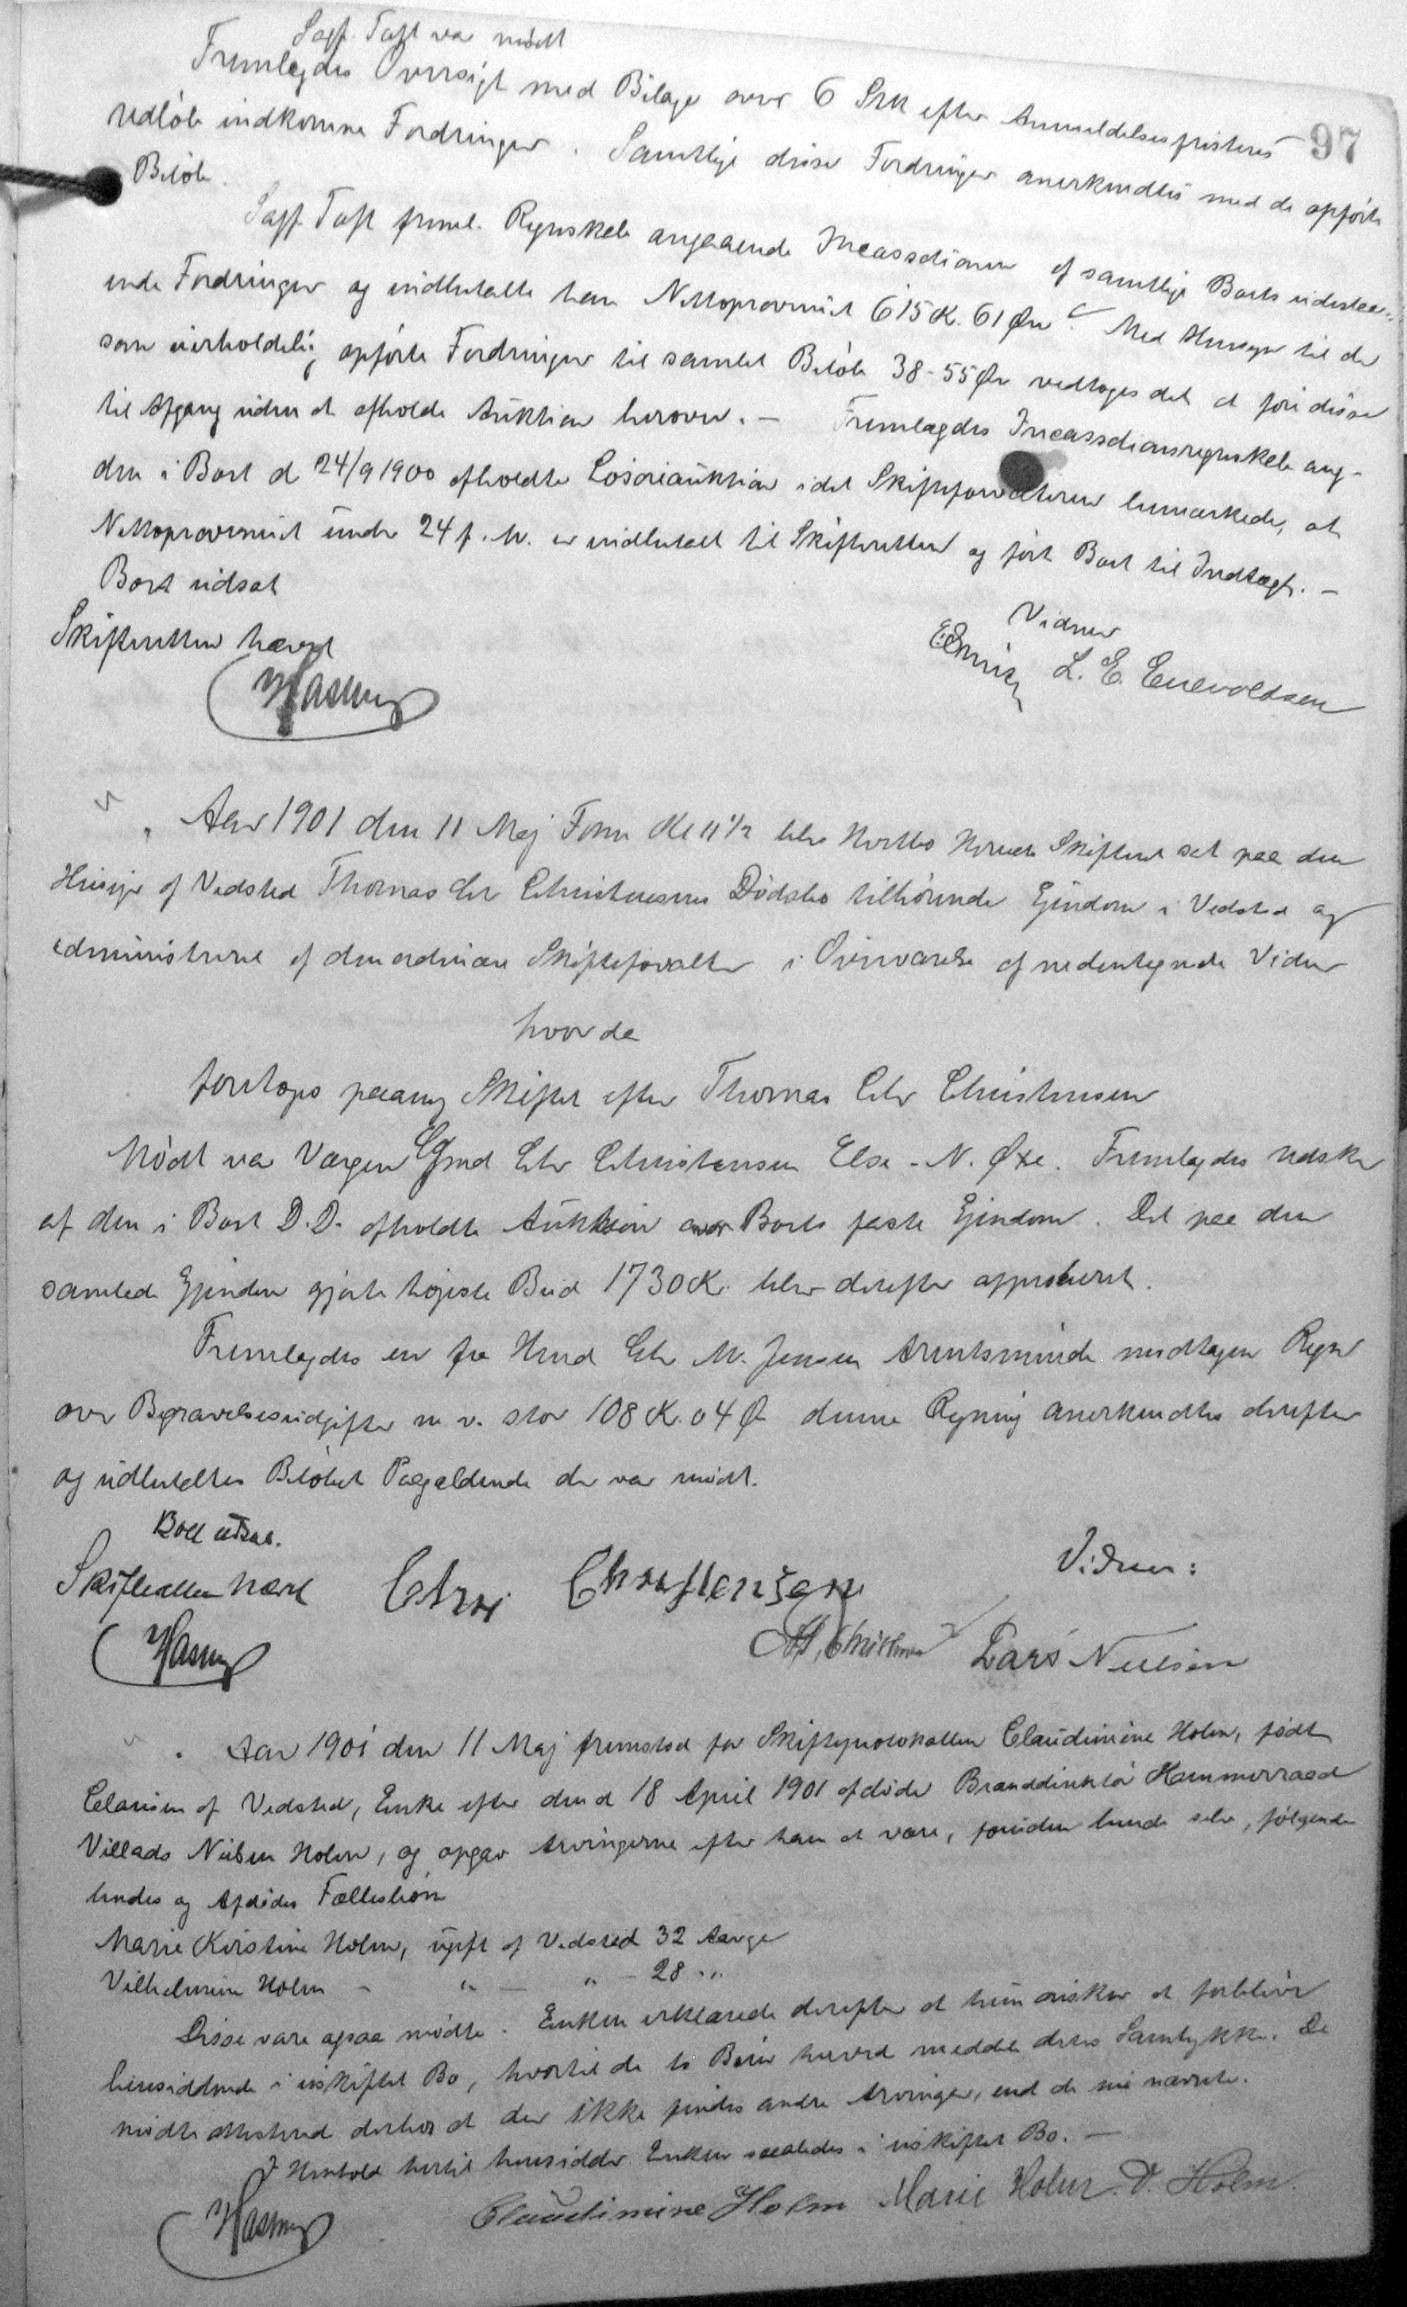 97
Sagf. Toft var mødt
Fremlagdes Oversigt med Bilage over 6 Stk efter Anmeldelsesfristens
Udløb indkomne Fordringer. Samtlige disse Fordringer anerkendtes med de opførte
Beløb.
Sagf. Toft freml. Regnskab angaaende Incassationen af samtlige Boets udestaa-
ende Fordringer og indbetalte han Nettoprovenuet 615 K. 61 Øre. Med Hensyn til de
som uerholdelig opførte Fordringer til samlet Beløb 38-55 Øre vedtoges det at føre disse
til Afgang uden at afholde Auktion herover. - Fremlagdes Incassationsregnskab ang-
den i Boet d 24/9 1900 afholdte Løsøreauktion idet Skifteforvalteren bemærkede, at
Nettoprovenuet under 24 f. M. er indbetalt til Skifteretten og ført Boet til Indtægt. -
Boet udsat
Skifteretten hævet
Vidner
L. E. Enevoldsen
Aar 1901 den 11 Maj Form Kl 11 1/2 blev Herreds Skifteret sat paa den
Husejer af Vedsted Thomas Chr Christensens Dødsbo tilhørende Ejendom i Vedsted og
administreret af den ordinære Skifteforvalter i Overværelse af nedentegnede Vidner
hvor da
foretoges paany Skiftet efter Thomas Chr Christensen
Mødt var Værgen Gmd Chr Christensen Else - N. Øxe. Fremlagdes Udskr
af den i Boet D.D. afholdte Auktion over Boets faste Ejendom. Det paa den
samlede Ejendom gjorte højeste Bud 1730 K. blev derefter approberet.
Fremlagdes en fra Hmd Chr M. Jensen modtagen Regn
over Begravelsesudgifter m v. stor 108 K. 04 Ø denne Regning anerkendtes derefter
og udbetaltes Beløbet Pagældende der var mødt.
Boet udsat.
Skifteretten hævet
Chri Christensen
Vidner:
Christensen
Lars Nielsen
Aar 1901 den 11 Maj fremstod for Skifteprotokollen Claudimine Holm, født
Clausen af Vedsted, Enke efter den d 18 April 1901 afdøde Branddirektør Kammerraad
Villads Nielsen Holm, og opgav Arvingerne efter ham at være, foruden hende selv, følgende
hendes og Afdødes Fællesbørn
Marie Kirstine Holm, ugift af Vedsted 32 Aarge
Vilhelmine Holm - " - " - 28 - "
Disse vare ogsaa mødte. Enken erklærede derefter at hun ønsker at forblive
hensiddende i uskiftet Bo, hvortil de to Børn herved meddele deres Samtykke. De
mødte attesterede derhos at der ikke findes andre Arvinger, end de nu nævnte.
I Henhold hertil hensidder Enken saaledes i uskiftet Bo. -
Claudimine Holm Marie Holm V. Holm.